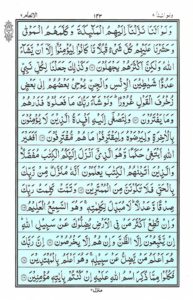 ولو اننا ٨ ١٣٣ الانعام ٦
وَلَوْ اَنَّنَا نَزَّلْنَاۤ اِلَيْهِمُ الْمَلٰٓئِكَةَ وَكَلَّمَهُمُ الْمَوْتٰى
وَحَشَرْنَا عَلَيْهِمْ كُلَّ شَيْءٍ قُبُلًا مَّا كَانُوْا لِيُؤْمِنُوْۤا اِلَّاۤ اَنْ يَّشَآءَ
اللّٰهُ وَلٰكِنَّ اَكْثَرَهُمْ يَجْهَلُوْنَ ۝ وَكَذٰلِكَ جَعَلْنَا لِكُلِّ نَبِيٍّ
عَدُوًّا شَيٰطِيْنَ الْاِنْسِ وَالْجِنِّ يُوْحِيْ بَعْضُهُمْ اِلٰى بَعْضٍ
زُخْرُفَ الْقَوْلِ غُرُوْرًا ؕ وَلَوْ شَآءَ رَبُّكَ مَا فَعَلُوْهُ فَذَرْهُمْ
وَمَا يَفْتَرُوْنَ ۝ وَلِتَصْغٰۤى اِلَيْهِ اَفْـِٕدَةُ الَّذِيْنَ لَا يُؤْمِنُوْنَ
بِالْاٰخِرَةِ وَلِيَرْضَوْهُ وَلِيَقْتَرِفُوْا مَا هُمْ مُّقْتَرِفُوْنَ ۝ اَفَغَيْرَ
اللّٰهِ اَبْتَغِيْ حَكَمًا وَّهُوَ الَّذِيْۤ اَنْزَلَ اِلَيْكُمُ الْكِتٰبَ مُفَصَّلًا ؕ
وَالَّذِيْنَ اٰتَيْنٰهُمُ الْكِتٰبَ يَعْلَمُوْنَ اَنَّهٗ مُنَزَّلٌ مِّنْ رَّبِّكَ
بِالْحَقِّ فَلَا تَكُوْنَنَّ مِنَ الْمُمْتَرِيْنَ ۝ وَتَمَّتْ كَلِمَتُ رَبِّكَ
صِدْقًا وَّعَدْلًا ؕ لَا مُبَدِّلَ لِكَلِمٰتِهٖ ۚ وَهُوَ السَّمِيْعُ الْعَلِيْمُ ۝
وَاِنْ تُطِعْ اَكْثَرَ مَنْ فِي الْاَرْضِ يُضِلُّوْكَ عَنْ سَبِيْلِ اللّٰهِ ؕ
اِنْ يَّتَّبِعُوْنَ اِلَّا الظَّنَّ وَاِنْ هُمْ اِلَّا يَخْرُصُوْنَ ۝ اِنَّ رَبَّكَ
هُوَ اَعْلَمُ مَنْ يَّضِلُّ عَنْ سَبِيْلِهٖ ۚ وَهُوَ اَعْلَمُ بِالْمُهْتَدِيْنَ ۝
فَكُلُوْا مِمَّا ذُكِرَ اسْمُ اللّٰهِ عَلَيْهِ اِنْ كُنْتُمْ بِاٰيٰتِهٖ مُؤْمِنِيْنَ ۝
منزل ٢